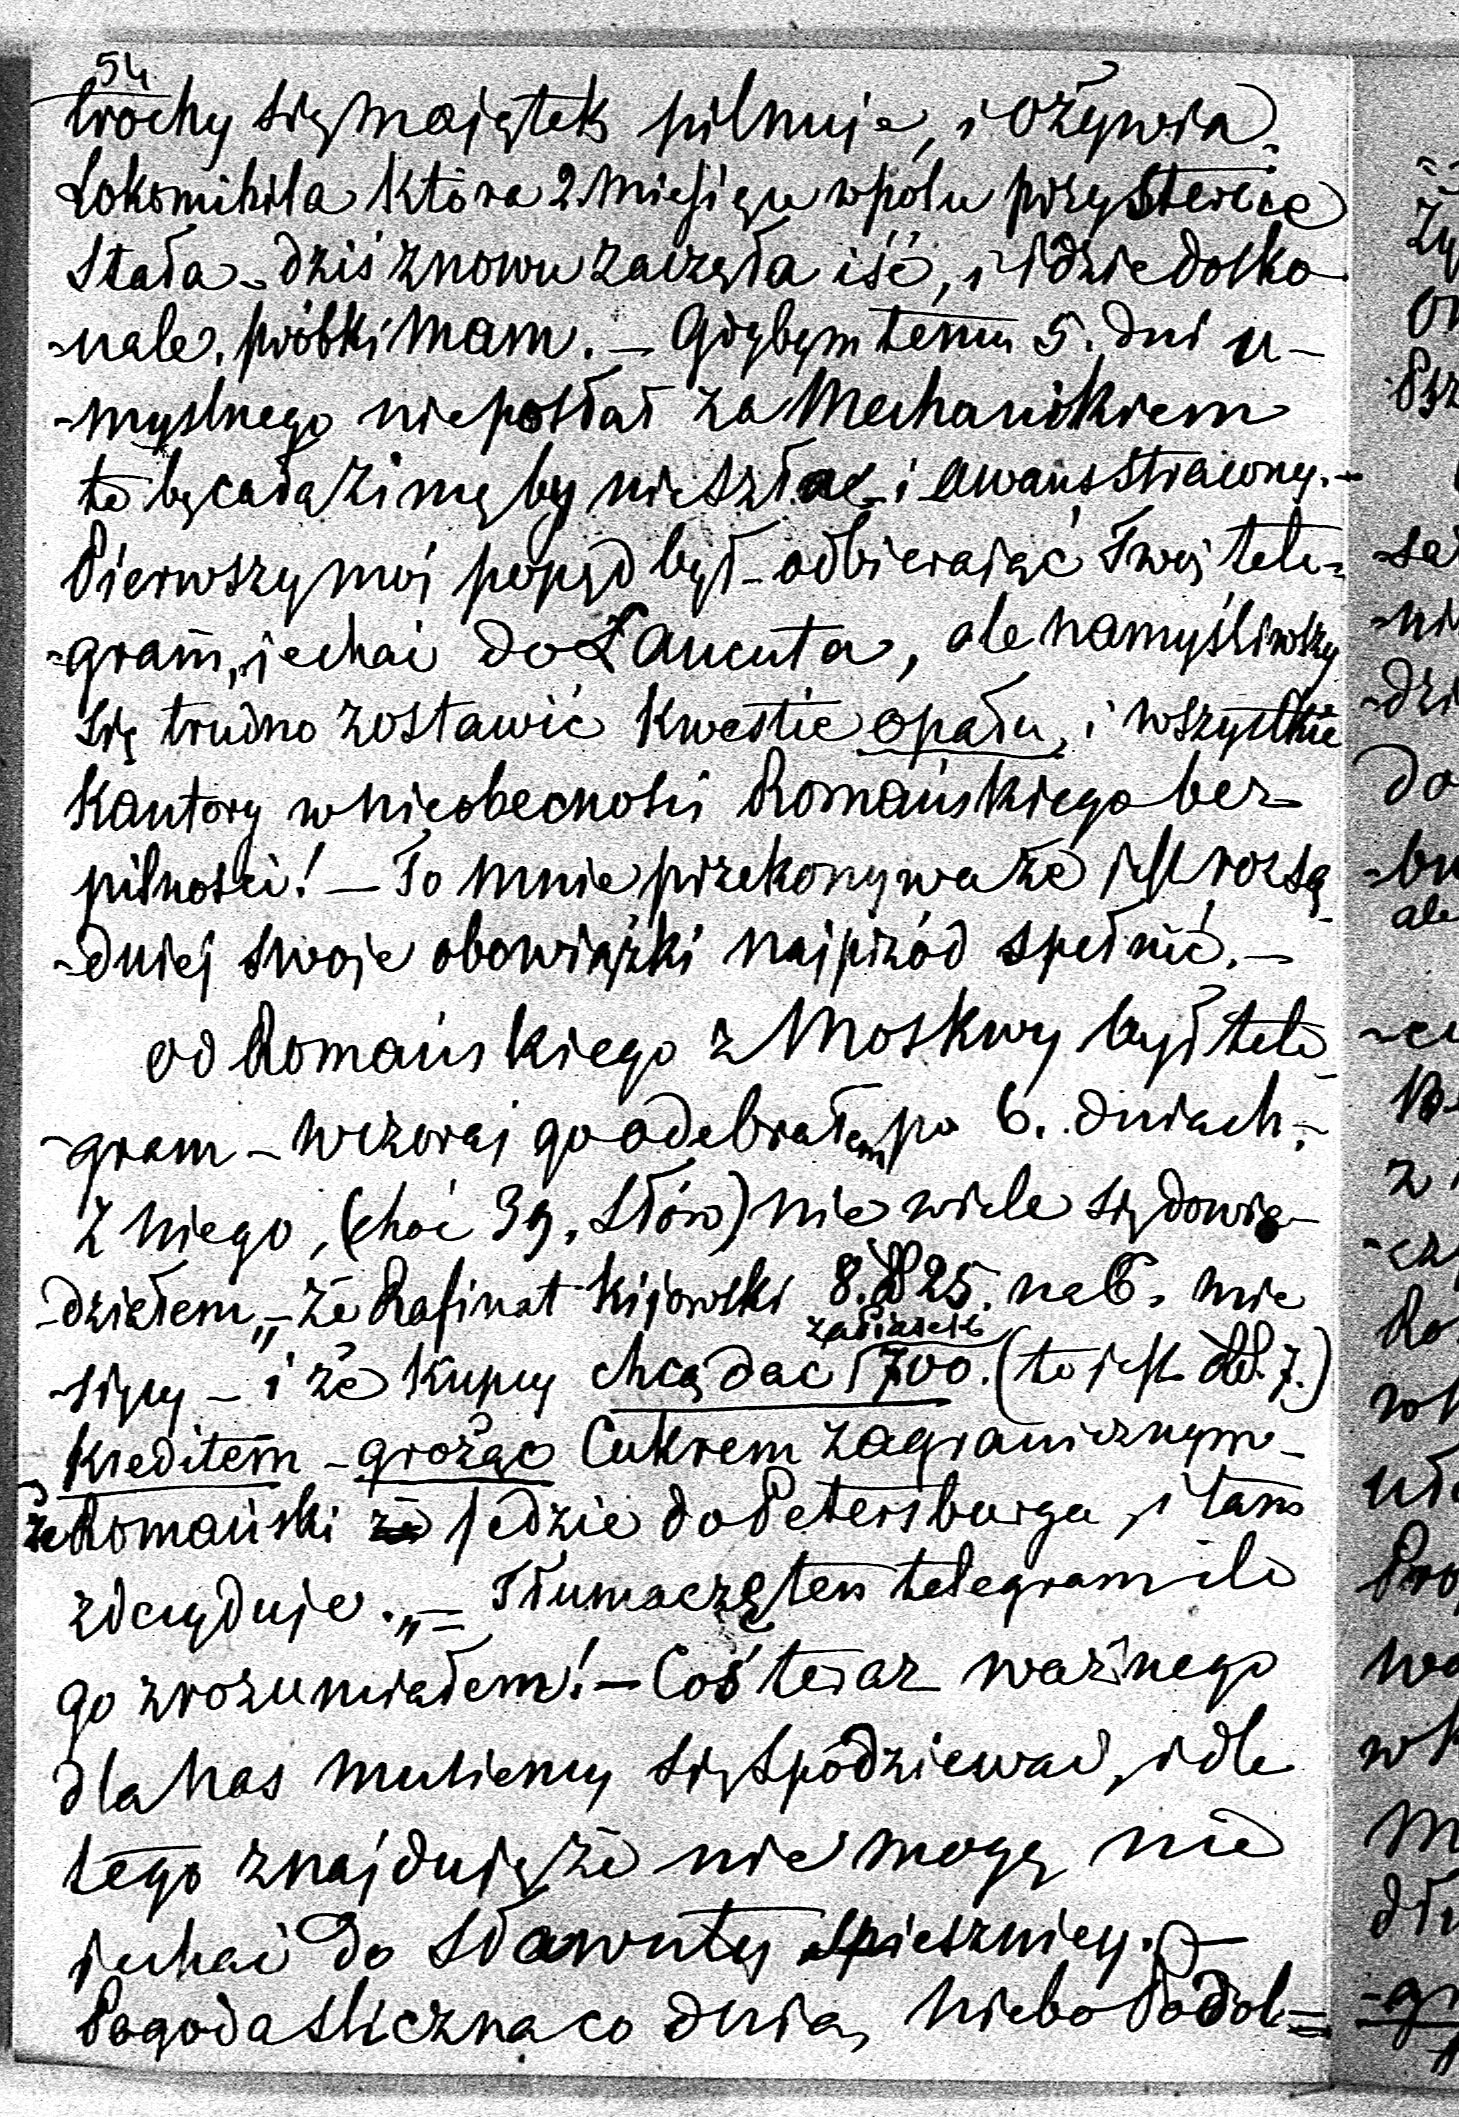 54
trochy się majątek pilnuje, i ożywia.
Lokomibila która 2 miesiące w polu przy stercie
stała – dziś znowu zaczęła iść, i idzie dosko
-nale, próbki mam. – Gdybym temu 5. dni u-
-myslnego nie posłał za Mechanikiem
to by całą zimę by nie szła – i awans stracony. –
Pierwszy moi popęd był – odbierając Twoj tele-
-gram, jechać do Łancuta, ale namyśliwszy
się trudno zostawić kwestie opału, i wszystkie
Kantory w nieobecności Romańskiego bez
pilności! – To mnie przekonywa że jest rozsą
-dniej swoje obowiązki najprzód spełnić. –
od Romańskiego z Moskwy był tele
-gram – wczoraj go odebrałem po 6. dniach. –
Z niego, (choć 39. słów) nie wiele się dowie-
-działem „– że Rafinat Kijowski 8. 25. na 6. mie
zaliczek
-sięcy – i że kupcy chcą dac 700. (to jest 7.)
Kreditem – grożąc Cukrem zagranicznym –
że Romański jedzie do Petersburga, i tam
zdecyduje. „– Tłumaczę ten telegram ile
go zrozumiałem! – Coś teraz ważnego
dla nas musiemy się spodziewać, i dla
tego znajduję że nie mogę nie
jechać do Sławuty spieszniey. –
Pogoda sliczna co dnia, niebo Podol=